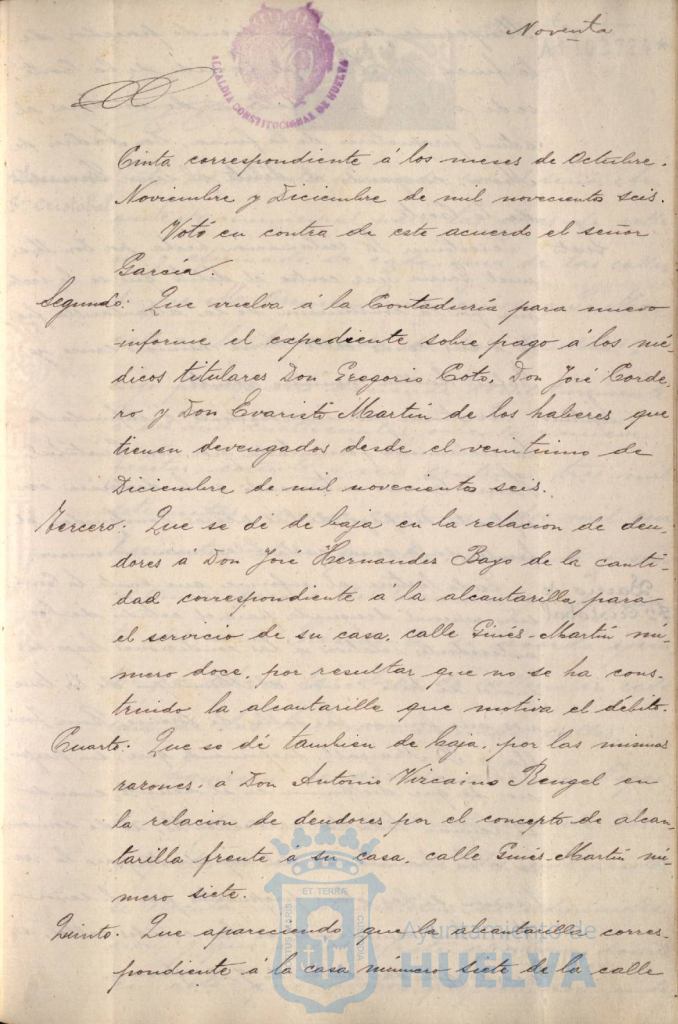 Noventa
ALCALDIA CONSTITUCIONAL DE HUELVA
Cinta correspondiente á los meses de Octubre.
Noviembre y Diciembre de mil novecientos seis.
Votó en contra de este acuerdo el señor
García.
Segundo: Que vuelva á la Contaduría para nuevo
informe el expediente sobre pago á los mé-
dicos titulares Don Gregorio Coto, Don José Corde-
ro y Don Evaristo Martin de los haberes que
tienen devengados desde el veintiuno de
Diciembre de mil novecientos seis.
Tercero: Que se dé de baja en la relacion de deu-
dores á Don José Hernandes Bayo de la canti-
dad correspondiente á la alcantarilla para
el servicio de su casa, calle Ginés-Martín nú-
mero doce, por resultar que no se ha cons-
truido la alcantarilla que motiva el débito.
Cuarto. Que se dé tambien de baja, por las mismas
razones, á Don Antonio Vizcaino Rengel en
la relacion de deudores por el concepto de alcan-
tarilla frente á su casa, calle Ginés-Martín nú-
mero siete.
Quinto. Que apareciendo que la alcantarilla corres-
pondiente á la casa número siete de la calle
ET TERRA
Ayuntamiento de
HUELVA